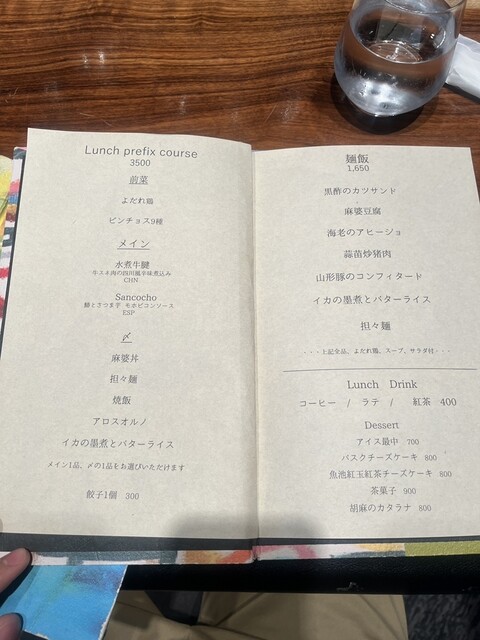 Lunch prefix course
3500
前菜
よだれ鶏
ピンチョス9種
メイン
水煮牛腱
牛スネ肉の四川風辛味煮込み
CHN
Sancocho
鯛とさつま芋 モホピコンソース
ESP
〆
麻婆丼
担々麺
焼飯
アロスオルノ
イカの墨煮とバターライス
メイン1品、〆の1品をお選びいただけます
餃子1個 300
麺飯
1,650
黒酢のカツサンド
麻婆豆腐
海老のアヒージョ
蒜苗炒猪肉
山形豚のコンフィタード
イカの墨煮とバターライス
担々麺
・・・上記全品、よだれ鶏、スープ、サラダ付・・・
Lunch Drink
コーヒー / ラテ / 紅茶 400
Dessert
アイス最中 700
バスクチーズケーキ 800
魚池紅玉紅茶チーズケーキ 800
茶菓子 900
胡麻のカタラナ 800